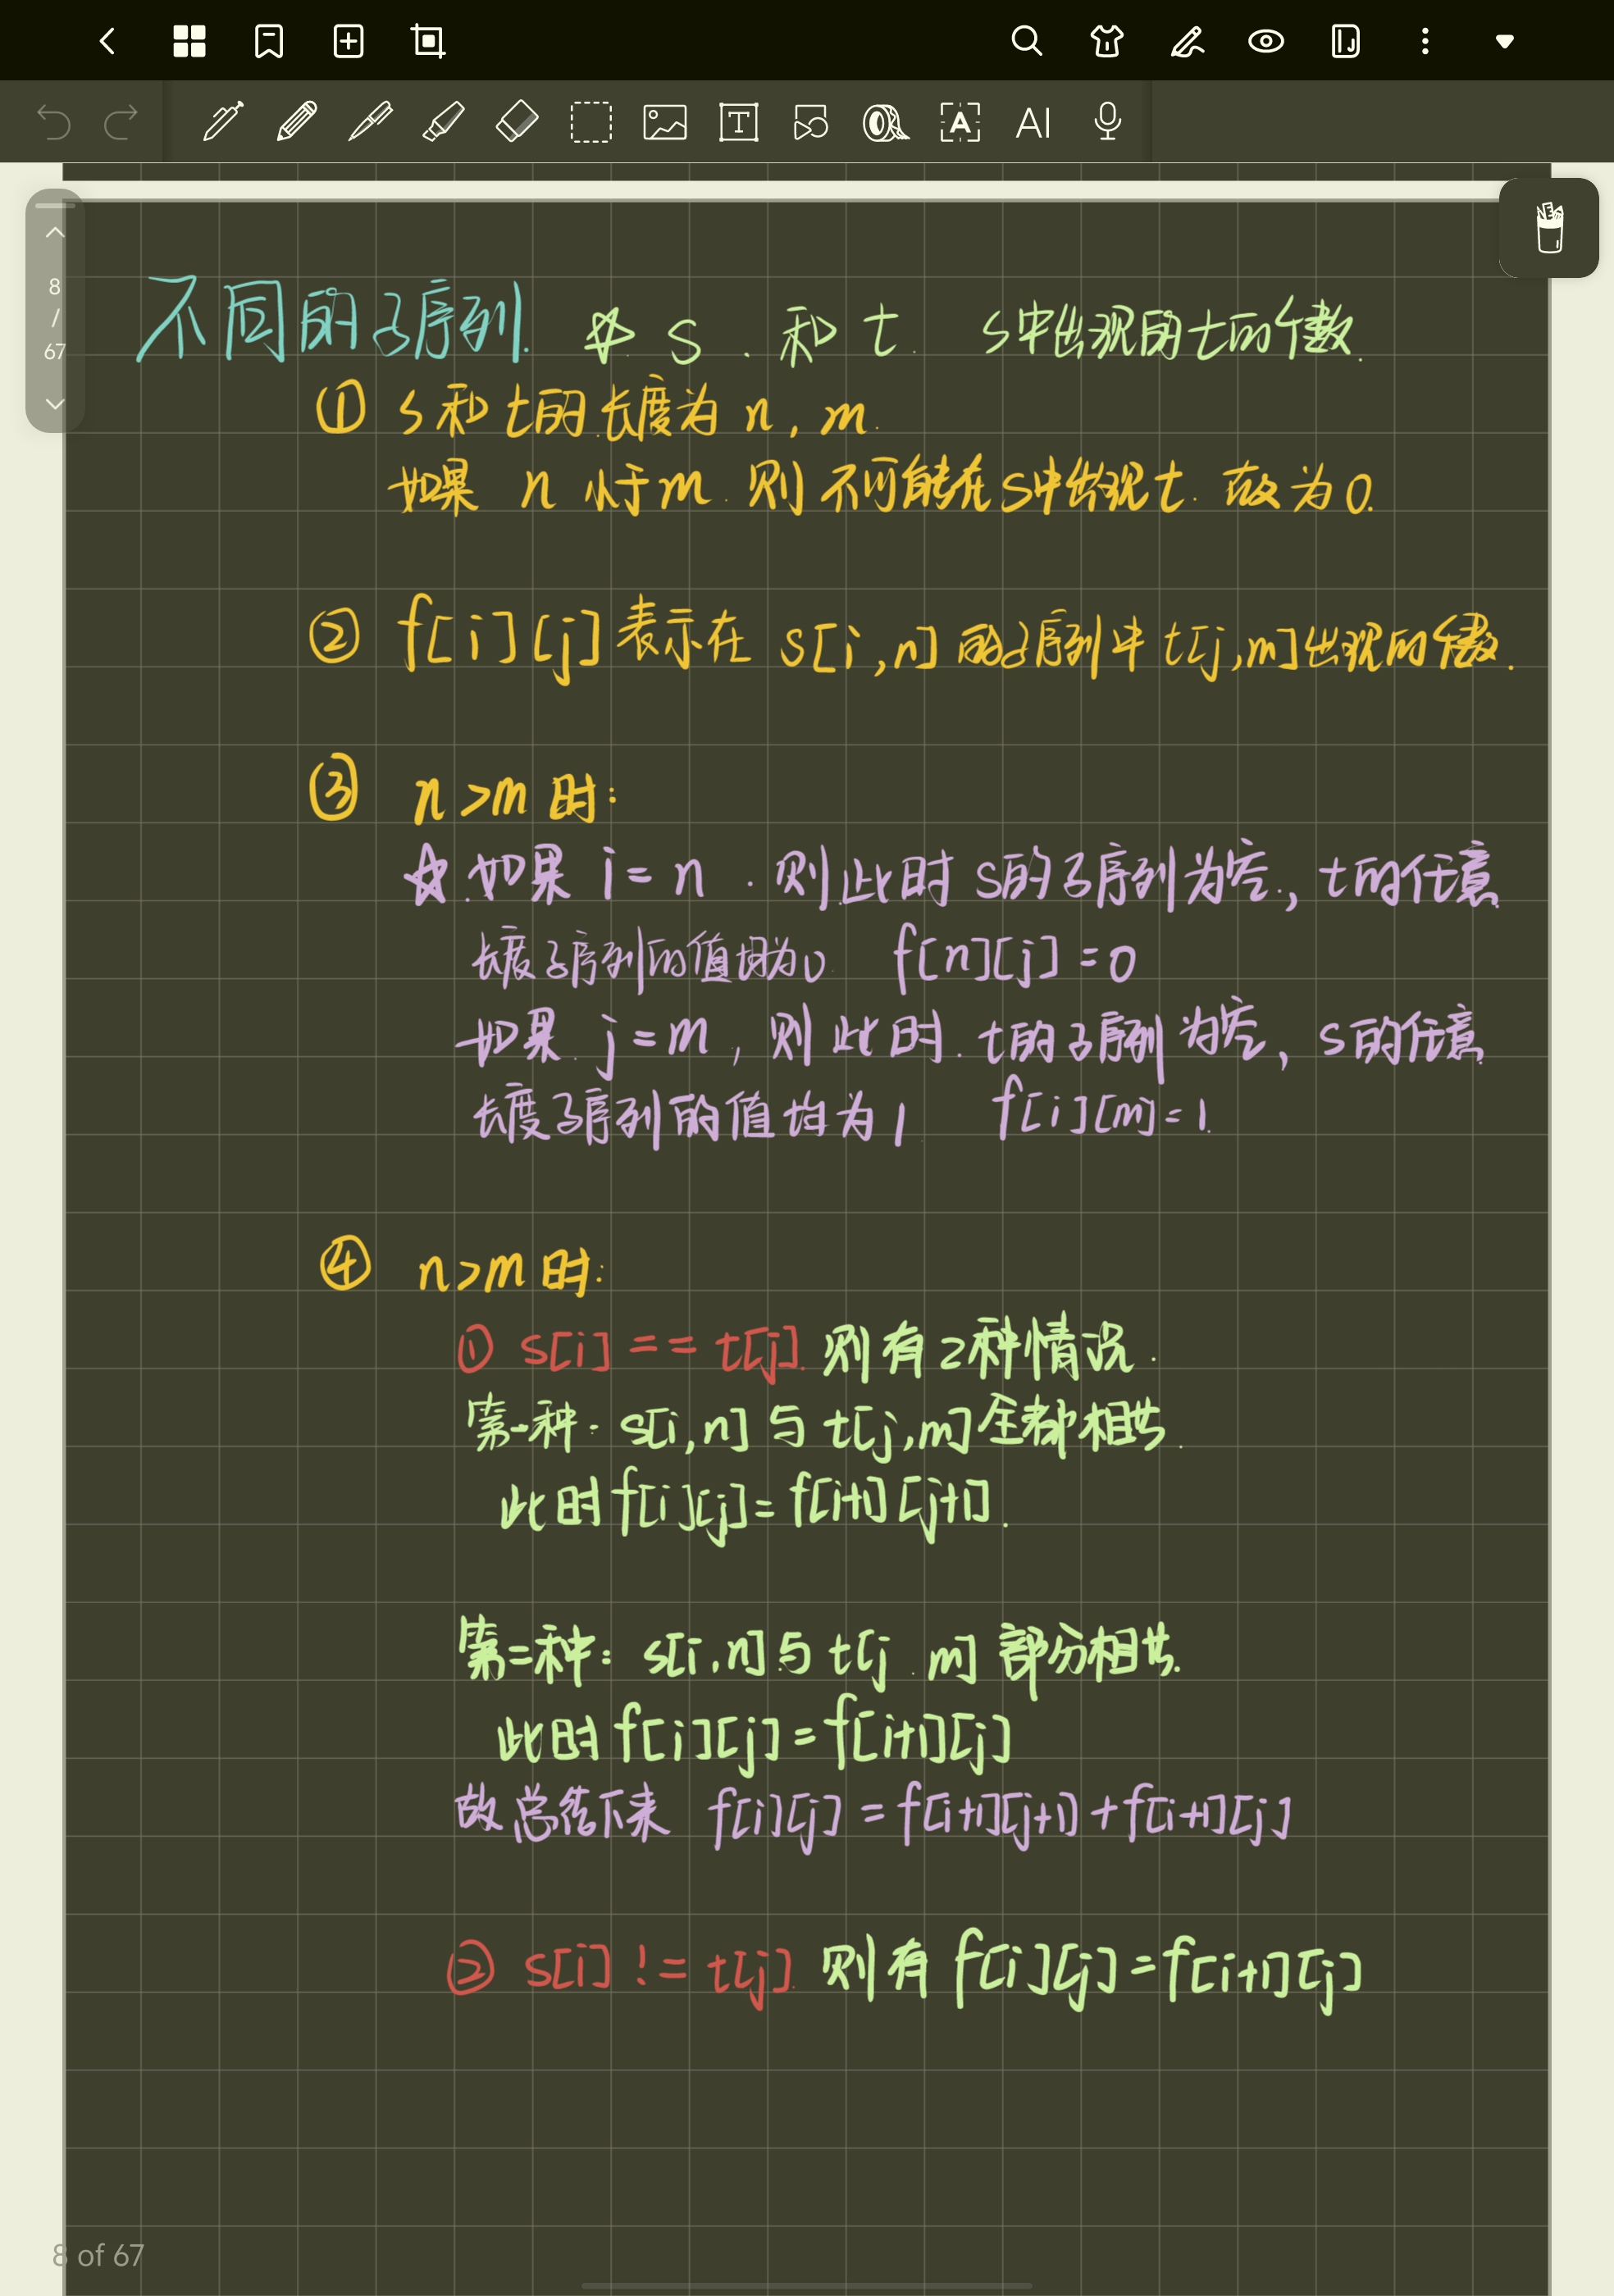 8
/
67
不同的子序列. ☆ s . 和 t. s中出现的t的个数.
① s和t的长度为 n, m.
如果 n 小于m. 则不可能在s中出现t. 故为0.
② f[i][j]表示在 s[i,n] 的子序列中 t[j,m]出现的个数.
③ n>m时:
☆. 如果 i=n . 则此时 s的子序列为空., t的任意
长度子序列的值均为0. f[n][j]=0
如果 j=m, 则此时. t的子序列为空, s的任意
长度子序列的值均为1. f[i][m]=1.
④ n>m时:
① s[i]==t[j]. 则有2种情况.
第一种: s[i,n]与t[j,m]全部相当.
此时f[i][j]=f[i+1][j+1].
第二种: s[i,n]与t[j.m]部分相当.
此时f[i][j]=f[i+1][j]
故总结下来 f[i][j]=f[i+1][j+1]+f[i+1][j]
② s[i]!=t[j]. 则有 f[i][j]=f[i+1][j]
8 of 67